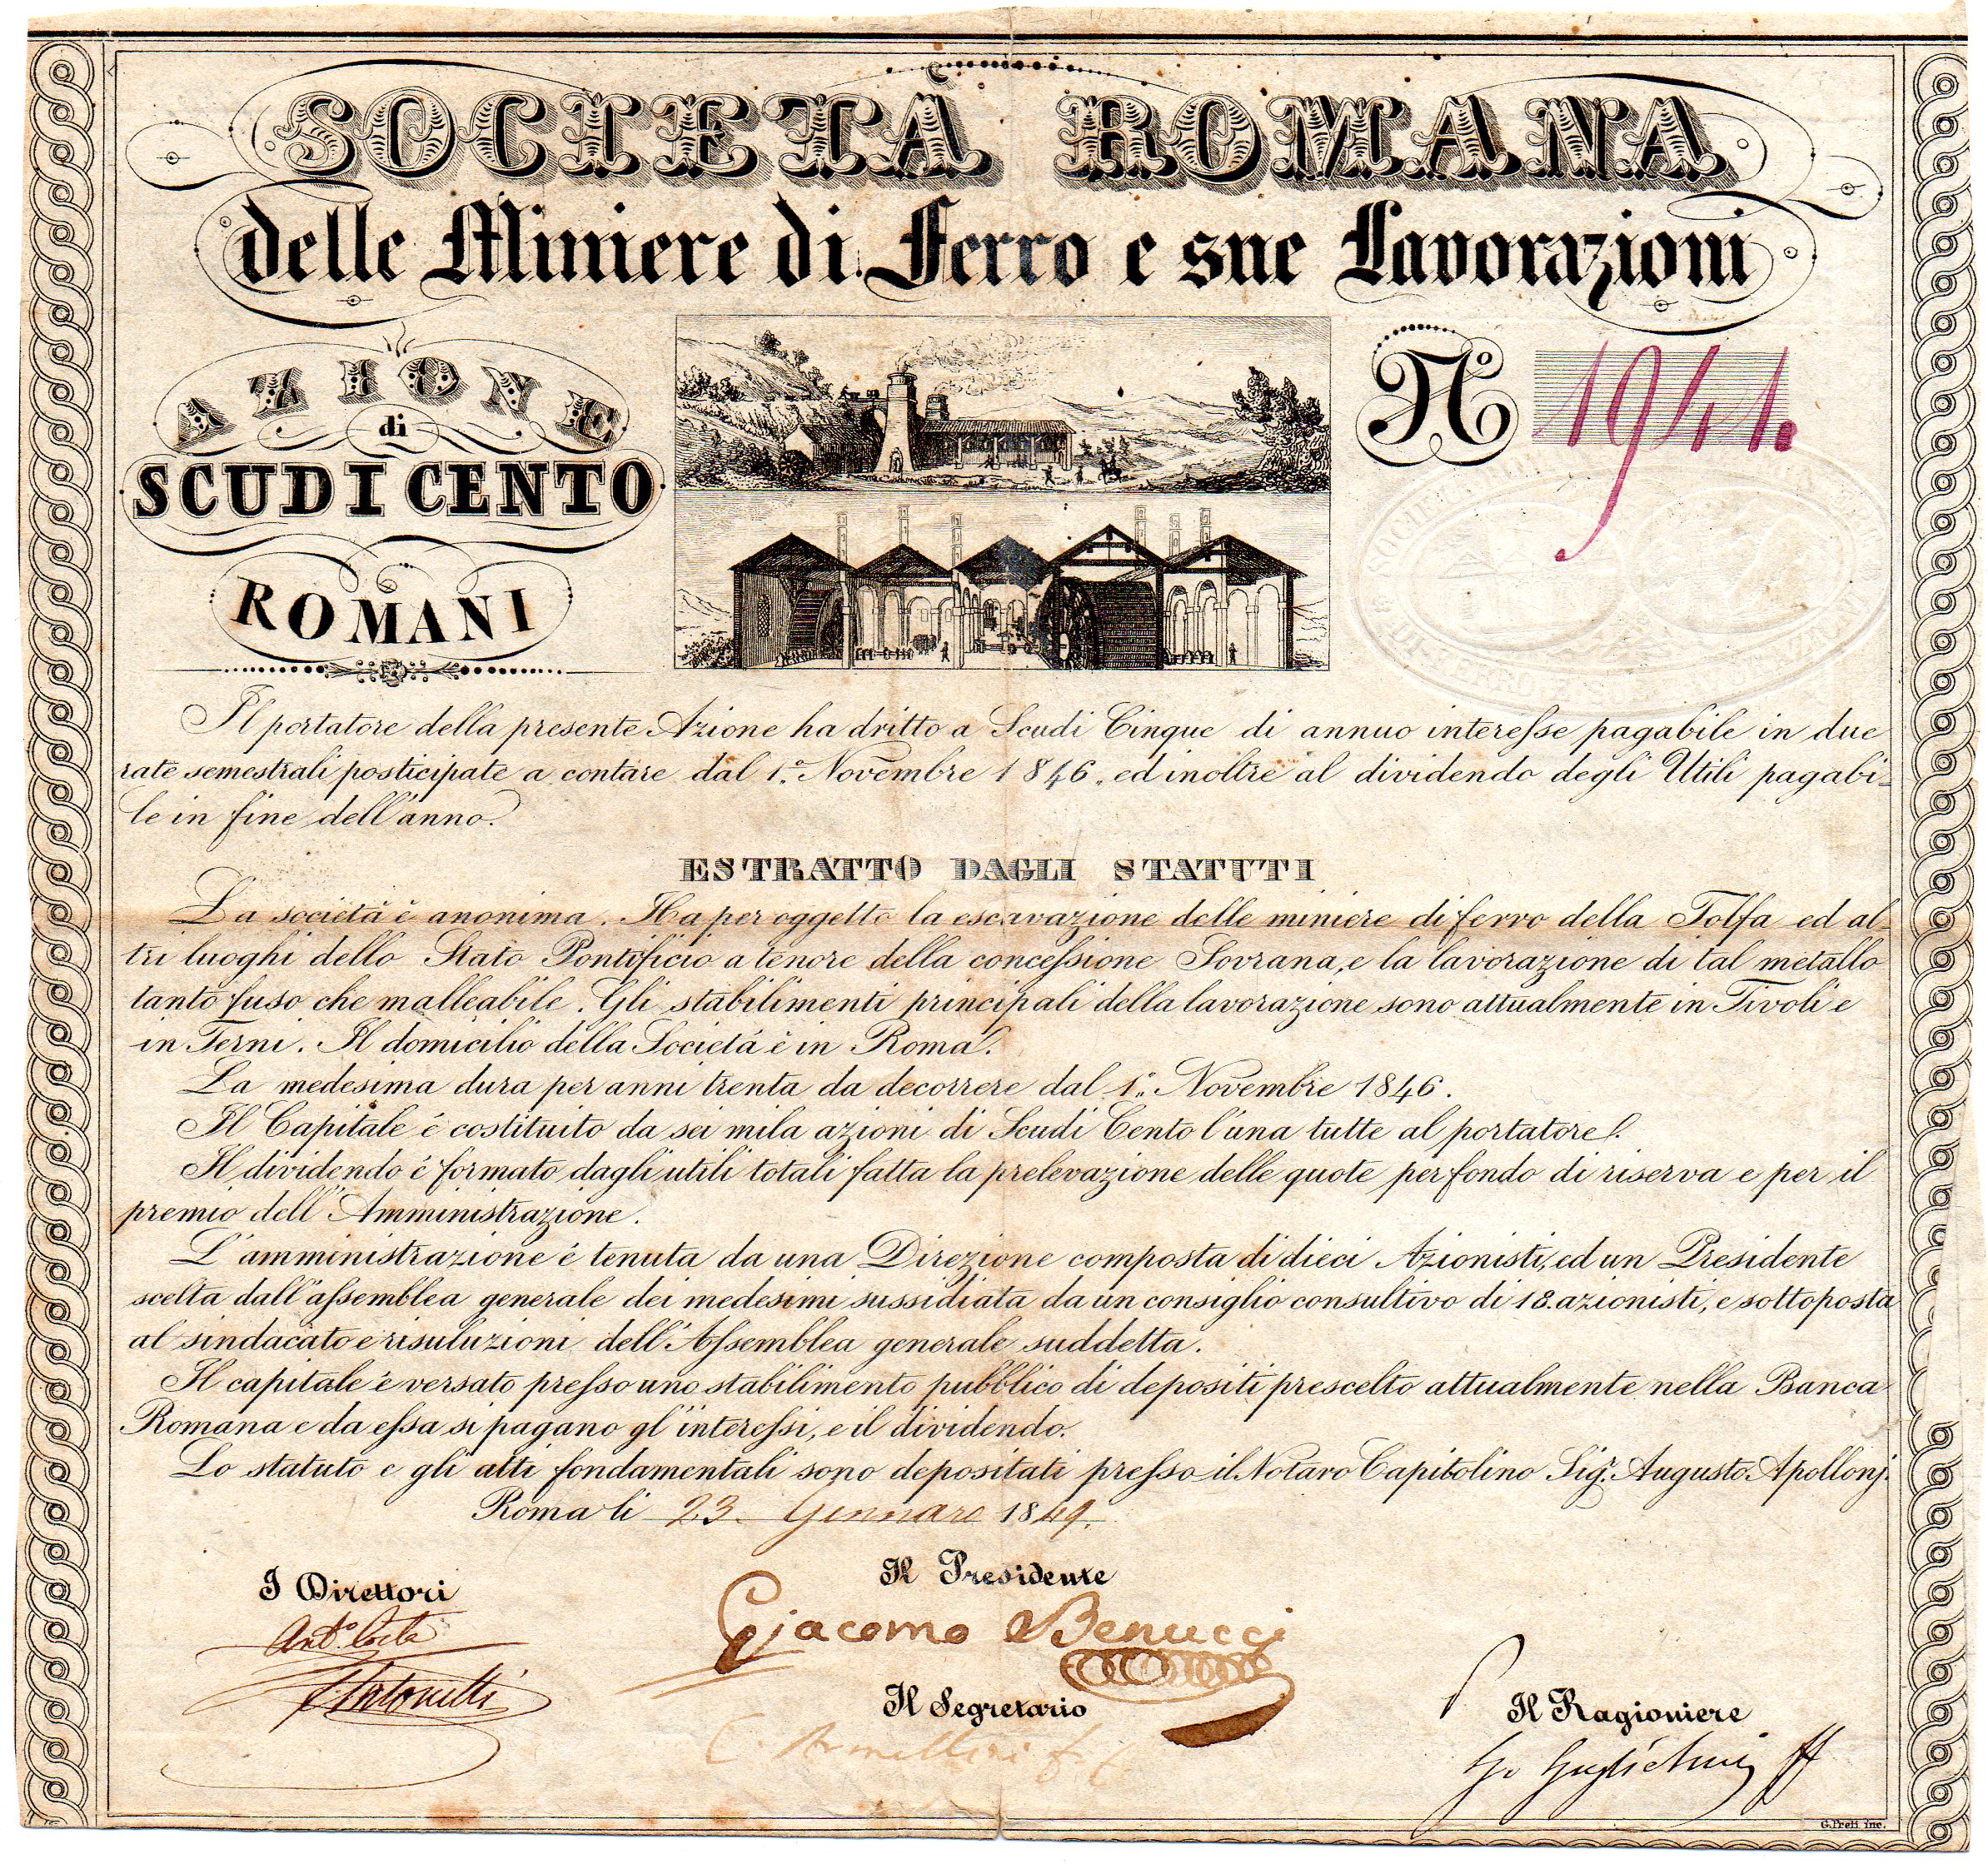 SOCIETÀ ROMANA
delle Miniere di Ferro e sue Lavorazioni
AZIONE
di
SCUDI CENTO
ROMANI
N.º 1941.
Il portatore della presente Azione ha dritto a Scudi Cinque di annuo interesse pagabile in due
rate semestrali posticipate a contare dal 1.º Novembre 1846, ed inoltre al dividendo degli Utili pagabi-
le in fine dell'anno.
ESTRATTO DAGLI STATUTI
La società è anonima. Ha per oggetto la escavazione delle miniere di ferro della Tolfa ed al-
tri luoghi dello Stato Pontificio a tenore della concessione Sovrana, e la lavorazione di tal metallo
tanto fuso che malleabile. Gli stabilimenti principali della lavorazione sono attualmente in Tivoli e
in Terni. Il domicilio della Società è in Roma.
La medesima dura per anni trenta da decorrere dal 1.º Novembre 1846.
Il Capitale é costituito da sei mila azioni di Scudi Cento l'una tutte al portatore.
Il dividendo é formato dagli utili totali fatta la prelevazione delle quote per fondo di riserva e per il
premio dell'Amministrazione.
L'amministrazione é tenuta da una Direzione composta di dieci Azionisti, ed un Presidente
scelta dall'assemblea generale dei medesimi sussidiata da un consiglio consultivo di 18. azionisti, e sottoposta
al sindacato e risuluzioni dell'Assemblea generale suddetta.
Il capitale é versato presso uno stabilimento pubblico di depositi prescelto attualmente nella Banca
Romana e da essa si pagano gl'interessi, e il dividendo.
Lo statuto e gli atti fondamentali sono depositati presso il Notaro Capitolino Sig.r Augusto Apollonj.
Roma li 23 Gennaro 1849.
I Direttori
Ant.º Costa
Antonelli
Il Presidente
Giacomo Benucci
Il Segretario
C. Armellini
Il Ragioniere
G. Guglielmi
G. Preti inc.